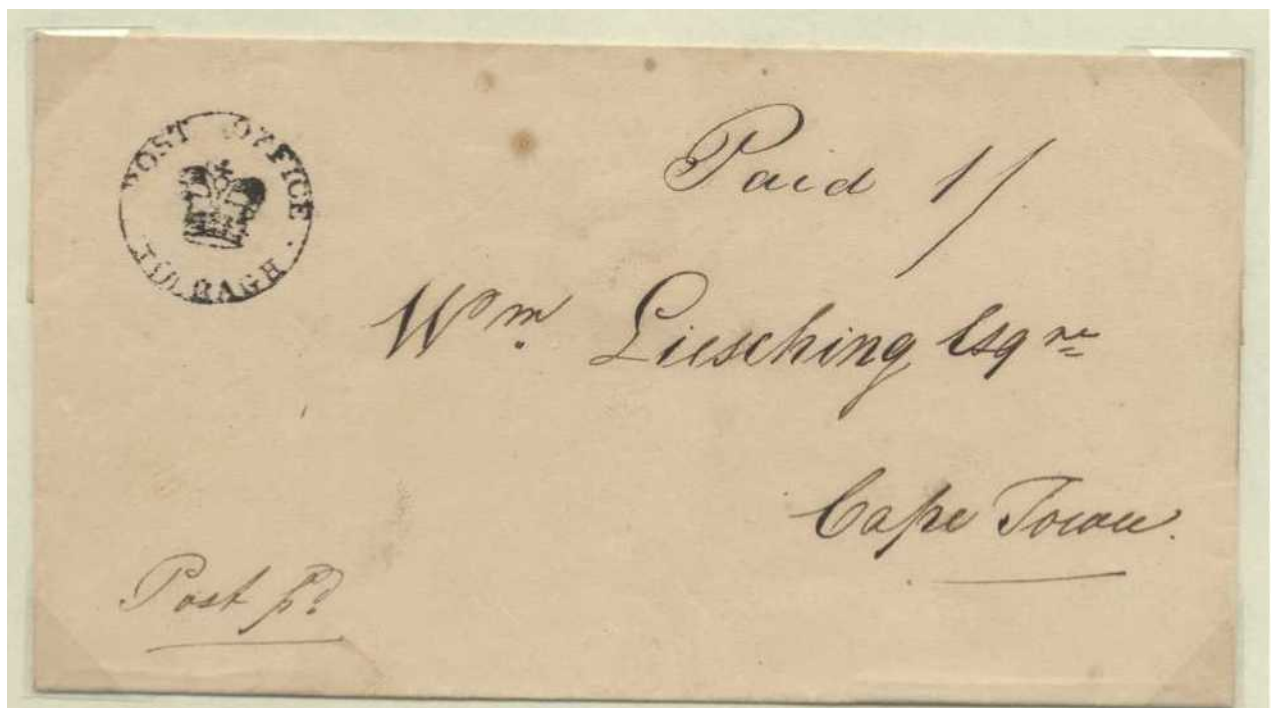 POST OFFICE
TULBAGH
Paid 1/
Wm Liesching Esqre
Cape Town.
Post pd